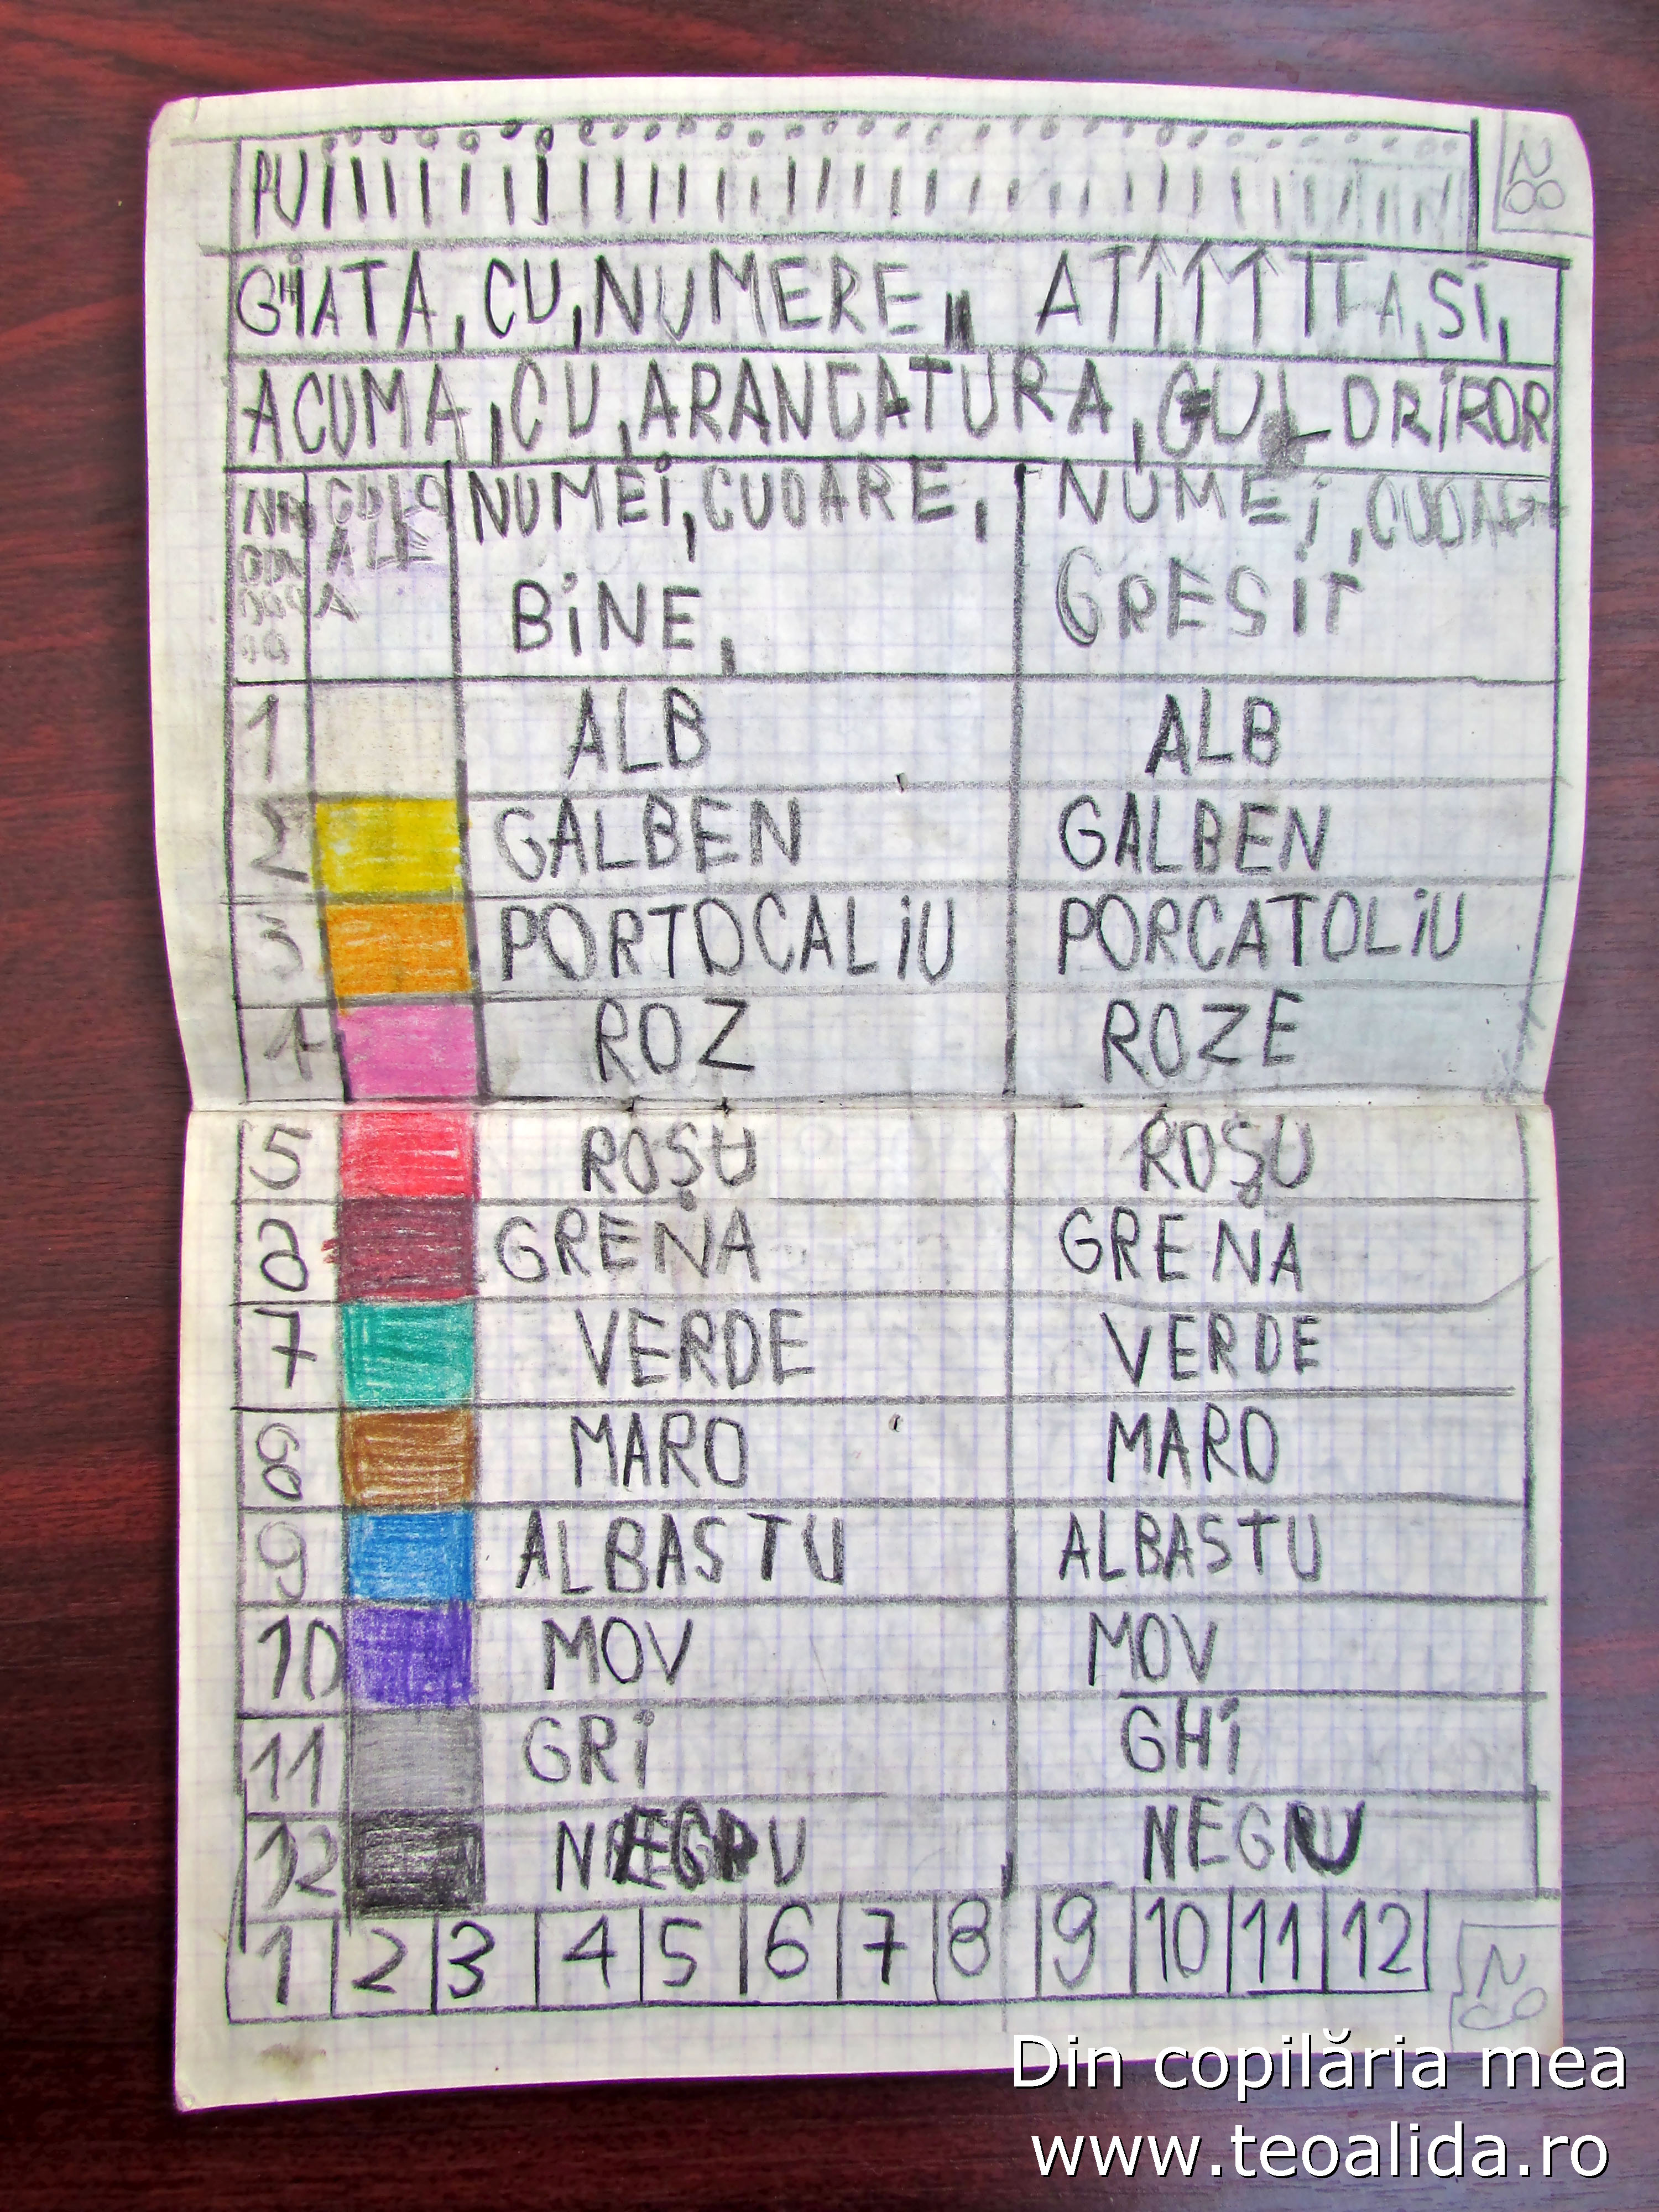 28
GHIATA, CU, NUMERE,, ATÎÎTTTTA, SI,
ACUMA, CU, ARANCATURA, CULORIROR
NUMEI, CUOARE, NUMEI, CUOA
BINE, GRESIT
1 ALB ALB
2 GALBEN GALBEN
3 PORTOCALIU PORCATOLIU
4 ROZ ROZE
5 ROȘU ROȘU
6 GRENA GRENA
7 VERDE VERDE
8 MARO MARO
9 ALBASTU ALBASTU
10 MOV MOV
11 GRI GHI
12 NEGRU NEGRU
1 2 3 4 5 6 7 8 9 10 11 12
29
Din copilăria mea
www.teoalida.ro